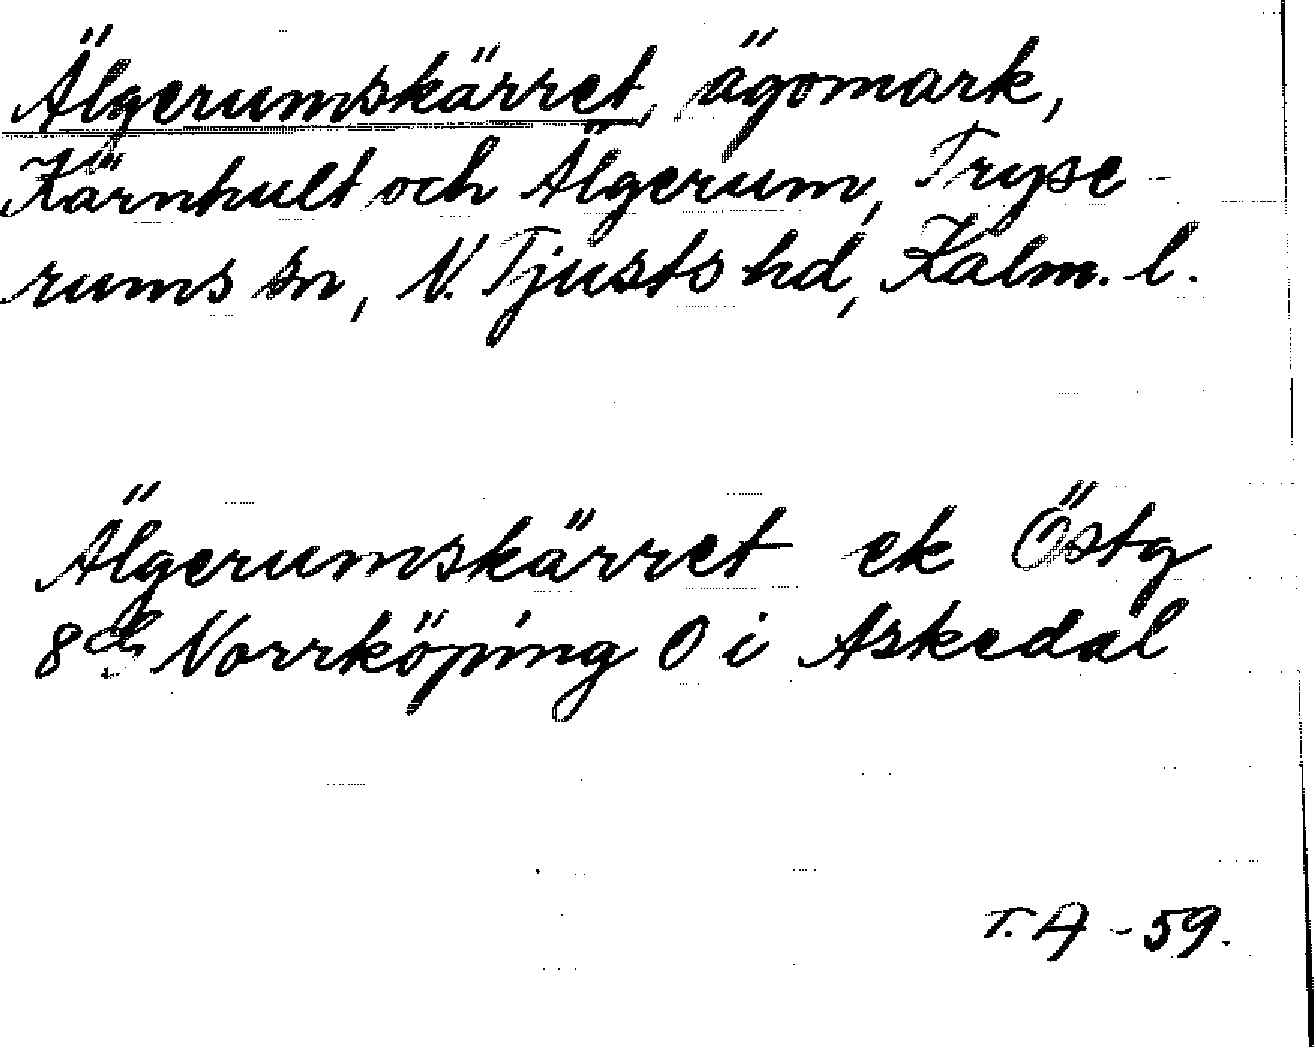 Älgerumskärret, ägomark,
Kärnhult och Älgerum, Tryse-
rums sn, N. Tjusts hd, Kalm. l.
Älgerumskärret ek Östg
8 d Norrköping O i Askedal
T. A -59.